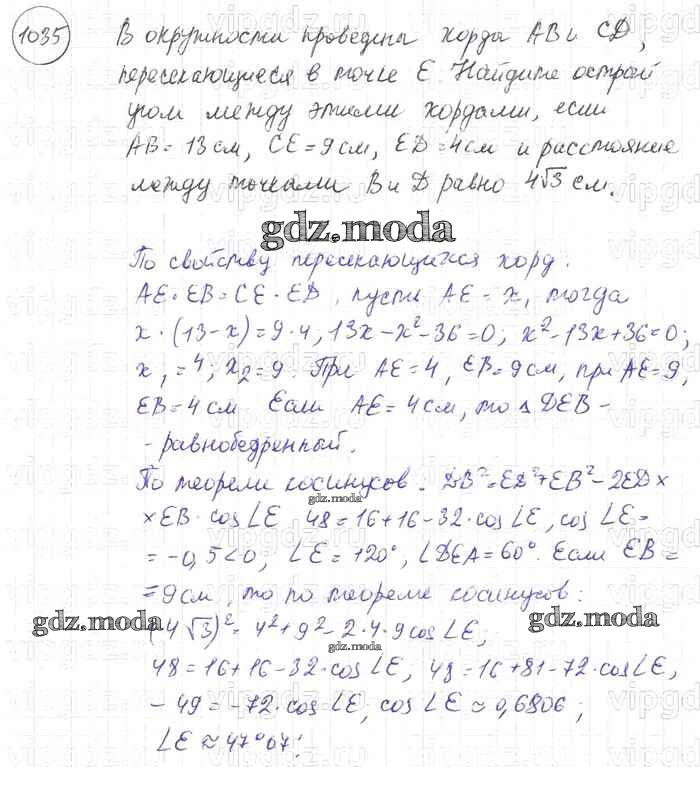 1035 В окружности проведены хорды AB и CD,
пересекающиеся в точке E. Найдите острый
угол между этими хордами, если
AB = 13 см, CE = 9 см, ED = 4 см и расстояние
между точками B и D равно 4√3 см.
gdz.moda
По свойству пересекающихся хорд.
AE · EB = CE · ED, пусть AE = x, тогда
x · (13 - x) = 9 · 4, 13x - x² - 36 = 0; x² - 13x + 36 = 0;
x₁ = 4; x₂ = 9. При AE = 4, EB = 9 см, при AE = 9,
EB = 4 см Если AE = 4 см, то △ DEB -
- равнобедренный.
По теореме косинусов. DB² = ED² + EB² - 2ED ×
gdz.moda
× EB · cos ∠E 48 = 16 + 16 - 32 · cos ∠E, cos ∠E =
= -0,5 < 0, ∠E = 120°, ∠DEA = 60°. Если EB =
gdz.moda
= 9 см, то по теореме косинусов:
gdz.moda gdz.moda
(4√3)² = 4² + 9² - 2 · 4 · 9 cos ∠E;
48 = 16 + 16 - 32 · cos ∠E; 48 = 16 + 81 - 72 · cos ∠E,
- 49 = -72 · cos ∠E, cos ∠E ≈ 0,6806;
gdz.moda
∠E ≈ 47°07'.